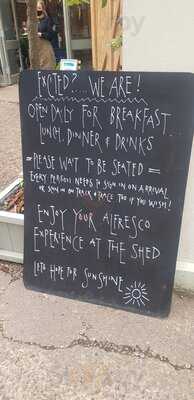 EXCITED?....WE ARE!
OPEN DAILY FOR BREAKFAST
LUNCH, DINNER & DRINKS
=PLEASE WAIT TO BE SEATED=
EVERY PERSON NEEDS TO SIGN IN ON ARRIVAL
OR SCAN IN ON TRACK & TRACE TOO IF YOU WISH!
ENJOY YOUR ALFRESCO
EXPERIENCE AT THE SHED
LETS HOPE FOR SUNSHINE